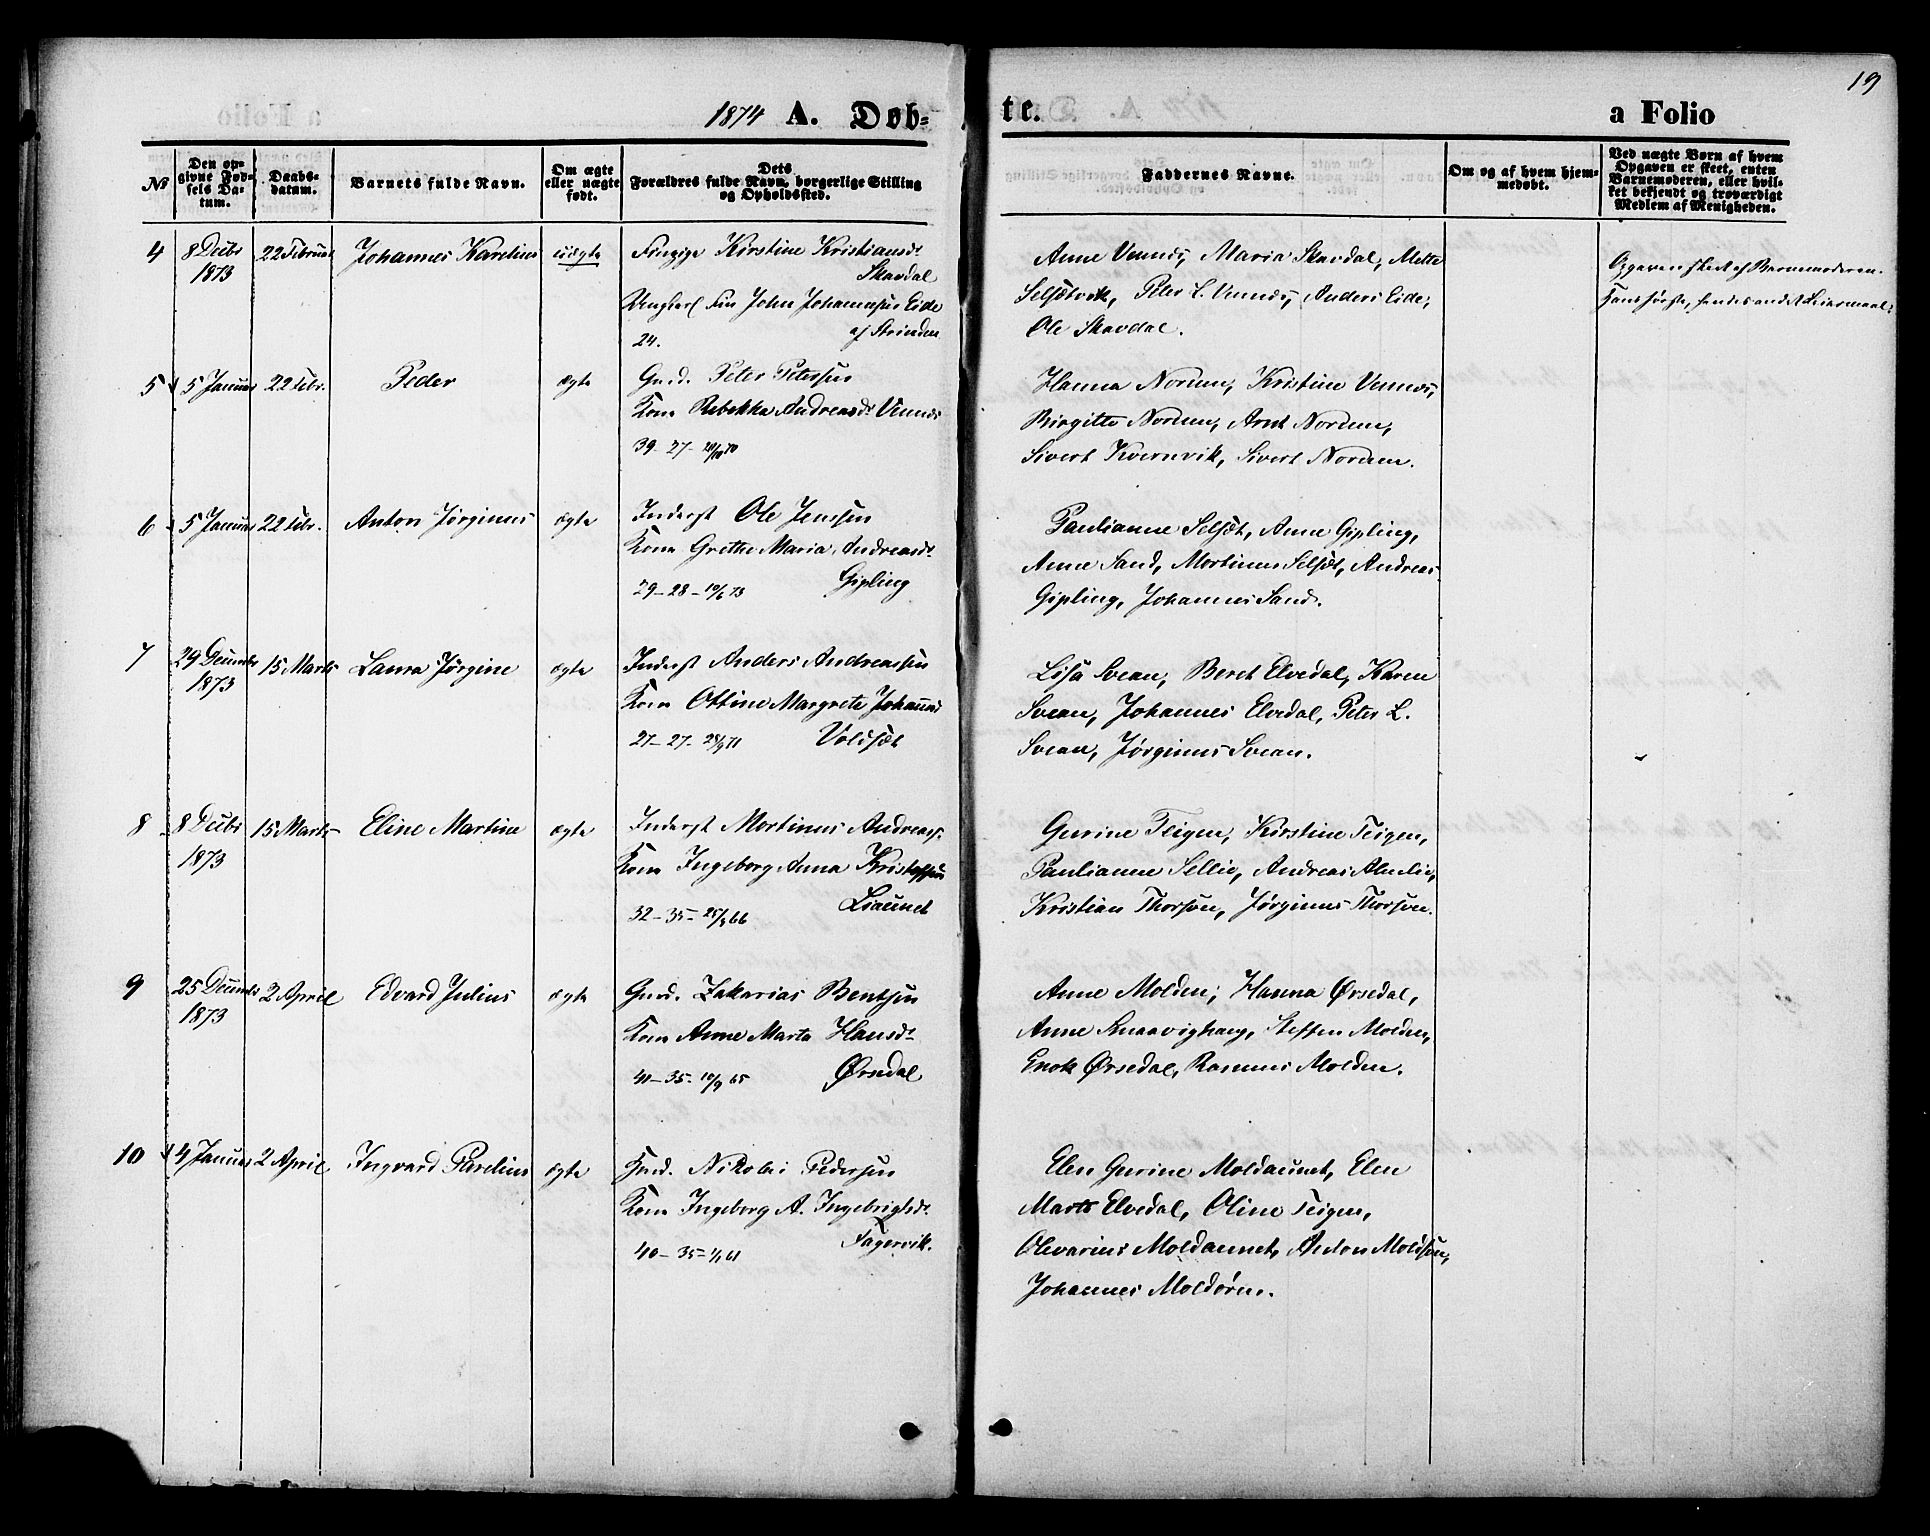 19
1874 A. Døb-
te.
a Folio
№
Den op-
givne Fød-
sels Da-
tum.
Daabs-
datum.
Barnets fulde Navn.
Om ægte
eller uægte
født.
Dets
Forældres fulde Navn, borgerlige Stilling
og Opholdssted.
Faddernes Navne.
Om og af hvem hjem-
medøbt.
Ved uægte Børn af hvem
Opgaven er skeet, enten
Barnemoderen, eller hvil-
ket bekjendt og troværdigt
Medlem af Menigheden.
4
8 Decbr
1873
22 Februar
Johannes Karelius
uægte
Kirstine Kristiansd.
Skavdal
Ungkarl John Johannesen Eide
af Strinden
24.
Anne Vennes, Maria Skavdal, Mette
Selsetvik, Peter L. Vennes, Anders Eide,
Ole Skavdal.
Opgaven skeet af Barnemoderen.
Hans første, hendes andet Leiermaal.
5
5 Januar
22 Febr.
Peder
ægte
Gmd. Peter Petersen
Kone Rebekka Andreasd. Vennes
39-27-
Hanna Nordun, Kristine Vennes,
Birgitte Nordun, Arnt Nordun,
Sivert Kvernvik, Sivert Nordun.
6
5 Januar
22 Febr.
Anton Jørginus
ægte
Inderst Ole Jenssen
Kone Grethe Maria Andreasd.
Gipling
29-28-10/6 73
Paulianne Selset, Anne Gipling,
Anne Sand, Mortinus Selset, Andreas
Gipling, Johannes Sand.
7
29 Decembr
1873
15 Marts
Laura Jørgine
ægte
Inderst Anders Andreassen
Kone Ottine Margrete Johannes
27-27- 71
Voldset
Lisa Svean, Beret Elvedal, Karen
Svean, Johannes Elvedal, Peter L.
Svean, Jørginus Svean.
8
8 Decbr
1873
15 Marts
Eline Martine
ægte
Inderst Mortinus Andreas.
Kone Ingeborg Anna
32-35- 66
Liaunet
Gurine Teigen, Kirstine Teigen,
Paulianne Sellie, Andreas Almlie,
Kristian Thorsøen, Jørginus Thorsøen.
9
25 Decembr
1873
2 April
Edvard Julius
ægte
Gmd. Zakarias Bentsen
Kone Anne Marta Hansd.
Ørsedal
41-35-10/9 65
Anne Molden, Hanna Ørsedal,
Anne Snaavighaug, Steffen Molden,
Enok Ørsedal, Rasmus Molden.
10
4 Januar
2 April
Ingvard Parelius
ægte
Gmd. Nikolai Pedersen
Kone Ingeborg A. Ingebrigtsd.
Fagervik.
40-35- 61
Elen Gurine Moldaunet, Elen
Marta Elvedal, Oline Teigen,
Olevarius Moldaunet, Anton Moldsøen,
Johannes Moldøren.